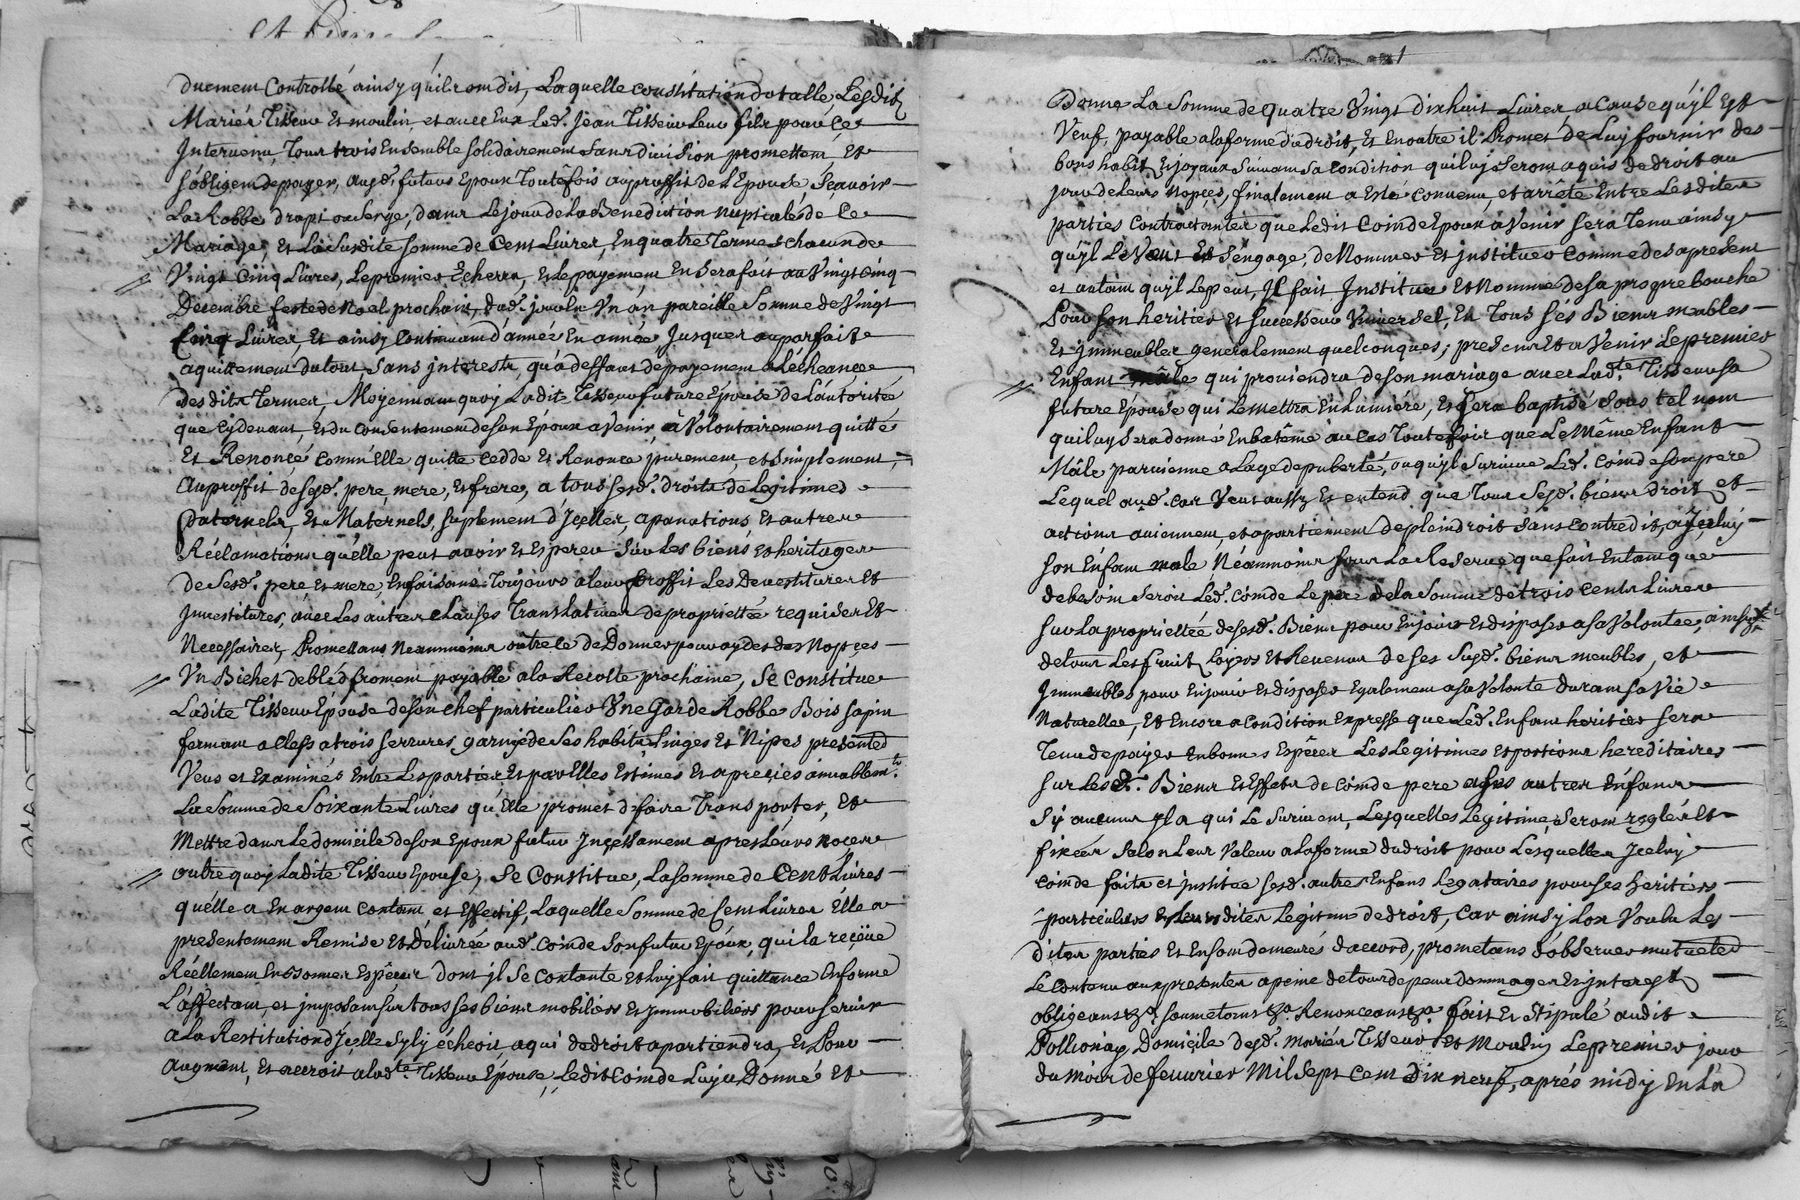 duement Controllé ainsy qu'ils ont dit, Laquelle constitution dotalle, Lesdits
Mariés Tisseur et moulin, et avec Eux Led. Jean Tisseur Leur fils pour ce
Intervenu, Tous trois Ensemble solidairement sans division promettent et
s'obligent de payer, ausd. futurs Epoux Toutefois au proffit de l'Epouse Sçavoir
La Robbe drapt ou serge, dans Le jour de La Benediction nuptiale de Ce
Mariage, et La susdite somme de Cent Livres, En quatre Termes chacun de
Vingt cinq Livres, Le premier Echerra, et Le payement En sera fait au Vingt cinq
Decembre feste de Noel prochain, dud. jour En Un an pareille Somme de Vingt
Cinq Livres, Et ainsy Continuant d'année En année Jusques au parfait
aquittement du tout, Sans jnterests, qu'a deffaut de payement a L'echeance
desdits Termes, Moyennant quoy Ladite Tisseur future Epouse de L'autorité
que cydevant, et du Consentement de son Epoux a Venir, à Volontairement quitté
Et Renoncé comm'Elle quitte cedde et Renonce purement, et simplement,
au proffit de sesd. pere, mere, et frere, a tous sesd. droits de legitimes
paternels, Et Maternels, suplement d'Jcelles, apanations et autres
Réclamations qu'elle peut avoir et esperer sur Les biens et heritages
de Sesd. pere, et mere, En faisant Toujours a leur proffit Les Devestitures et
jnvestitures, avec Les autres Clauses Translatives de proprietté requises Et
Necessaires, Promettans Neanmoins outre ce de Donner pour aydes des Nopçes
Un Bichet de bléd froment payable a la Recolte prochaine, Se constitue
Ladite Tisseur Epouse de son chef particulier Une Garde Robbe Bois sapin
fermant a Clefs a trois serrures, garnye de ses habits Linges et Nipes presentes
Veus et Examinés Entre Les parties Et par Elles Estimés Et apreciés amiablemt.
La somme de Soixante Livres qu'Elle promet de faire Transporter, et
Mettre dans Le domicile de son Epoux futur Inçessament apres Leurs noces
outre quoy Ladite Tisseur Epouse, Se Constitue, La somme de Cent Livres
qu'elle a En argent contant et Effectif, Laquelle Somme de Cent Livres Elle a
presentement Remise Et Délivrée aud. Coinde Son futur Epoux, qui la reçüe
Réellement En bonnes Espèces dont jl Se Contante et Luy fait quittance En forme
L'affectant, et jmposant sur tous ses biens mobiliers et jmmobiliers pour servir
a La Restitution d'Jcelle sy ly écheoit, a qui de droit apartiendra, Et Pour
augment, Et accroit a lad.te Tisseur Epouse, Ledit Coinde Luy a Donné Et
Donne La Somme de Quatre Vingt dix huit Livres, a Cause qu'yl est
Veuf, payable a la forme du droit, Et En outre il Promet de Luy fournir des
bons habits, Et joyaux Suivant Sa Condition qui luy seront aquis de droit au
jour de Leurs Nopçes, finalement a Esté convenu, et arreté Entre Lesdites
parties Contractantes que Ledit Coinde Epoux a Venir sera Tenu ainsy
qu'yl Le Veut Et s'engage, de Nommer Et jnstituer Comme des a present
et autant qu'yl Le peut, Jl fait Institue Et Nomme de sa propre bouche
Pour son heritier et successeur Universel, En Tous ses Biens meubles
Et Jmmeubles generalement quelconques, presens et a Venir Le premier
Enfant mâle qui proviendra de son mariage avec Lad.te Tisseur sa
future Epouse qui Le mettra En Lumiére, Et sera baptisé sous tel nom
qui luy sera donné En batême au Cas Toutefois que Le Même Enfant
Mâle parvienne a Lage de puberté, ou qu'yl survive Led. Coinde son pere
Lequel aud. cas Veut aussy et entend que Tous Sesd. biens droits et
actions aviennent, et apartiennent de plein droit sans Contredit, a Jceluy
son Enfant male Néanmoins sous La Reserve que fait En tant que
de besoin seroit Led. Coinde Le pere de la Somme de trois Cents Livres
sur La proprietteé de sesd. Biens pour En jouir Et disposer a sa Volontée, ainsy
de tous Les fruits Loyers et Revenus de ses susd. biens meubles, et
Jmmeubles pour En jouir Et disposer Egalement a sa Volonte durant sa Vie
Naturelle, Et Encore a Condition Expresse que Led. Enfant heritier sera
Tenu de payer En bonnes Espêces Les Legitimes et portions hereditaires
sur Lesd. Biens Et Effets de Coinde pere a ses autres Enfans
sy aucuns yl a qui Le Survivent, Lesquelles Legitimes Seront regleés Et
fixées selon Leur Valeur a La forme du droit pour Lesquelles Jceluy
Coinde faits et jnstitue sesd. autres Enfans Legataires pour ses heritiers
particuliers En Leursdites Legitimes de droit, Car ainsy L'on Voulu Les
dites parties Et En sont demeurés d'accord, prometans d'observer mutuelement
Le Contenu aux presentes a peine de tous depens dommages Et jnterests
obligeans &a. soumetans &a. Renonceans &a. fait Et Stipulé audit
Pollionay, Domicile desd. Mariés Tisseur Et Moulin Le premier jour
du mois de fevrier Mil Sept Cent Dix neuf, aprés midy En La